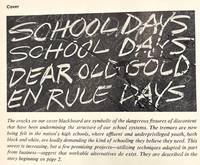 Cover
SCHOOL DAYS
SCHOOL DAYS
DEAR OLD GOLD
EN RULE DAYS
The cracks on our cover blackboard are symbolic of the dangerous fissures of discontent
that have been undermining the structure of our school systems. The tremors are now
being felt in the nation's high schools, where affluent and underprivileged youth, both
black and white, are loudly demanding the kind of schooling they believe they need. This
unrest is increasing, but a few promising projects—utilizing techniques adapted in part
from business—suggest that workable alternatives do exist. They are described in the
story beginning on page 2.